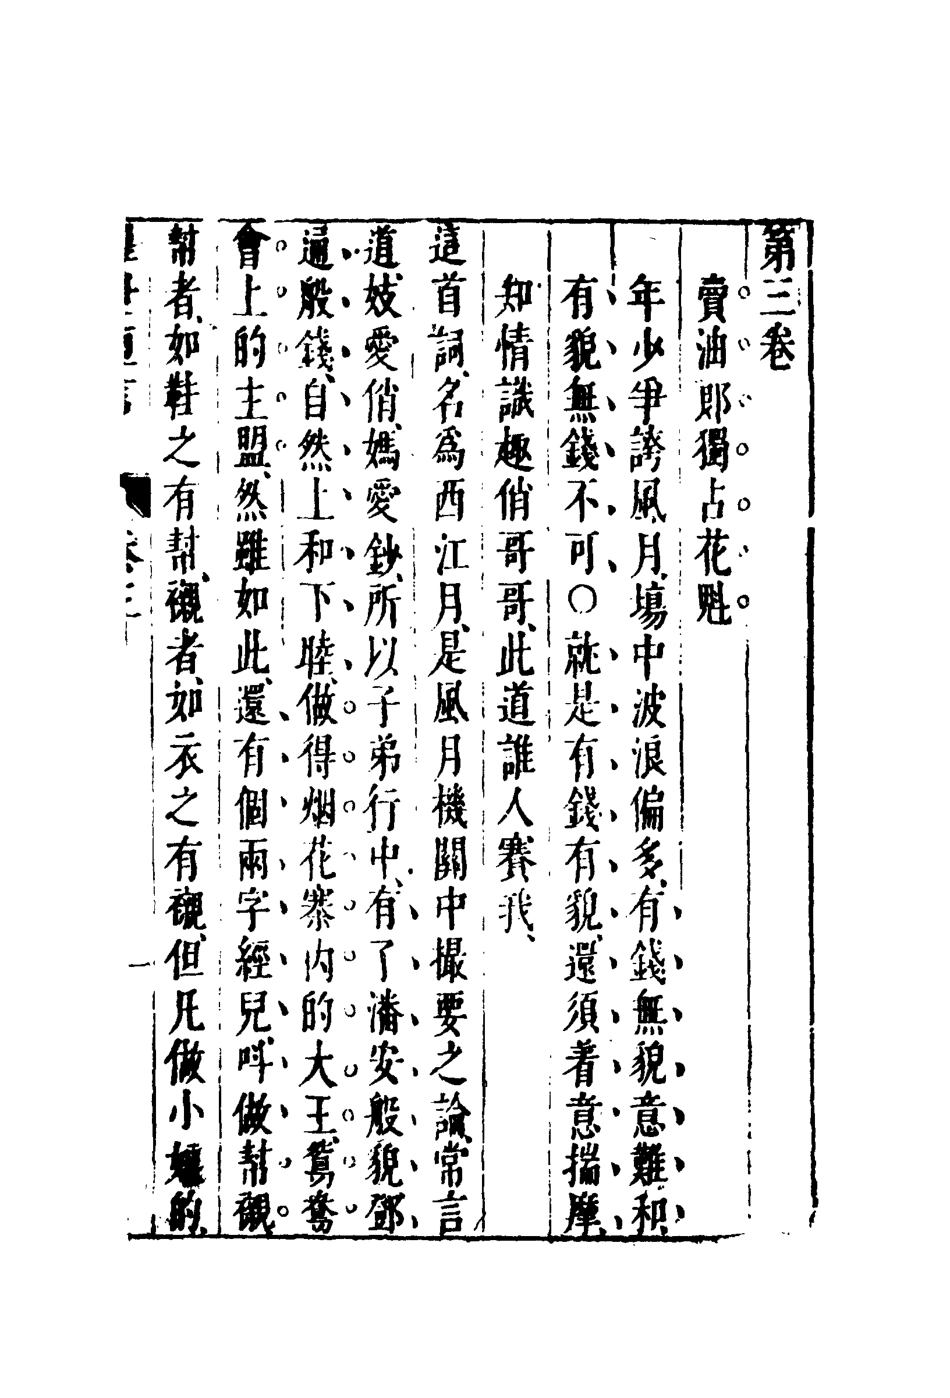 第三卷
賣油郎獨占花魁
年少爭誇風月、塲中波浪偏多、有錢無貌意難和、
有貌無錢不可〇就是有錢有貌、還須着意揣摩、
知情識趣俏哥哥、此道誰人賽我、
這首詞、名爲西江月、是風月機關中撮要之論、常言
道妓愛俏、媽愛鈔、所以子弟行中、有了潘安般貌、鄧
通般錢、自然上和下睦、做得烟花寨內的大王、鴛鴦
會上的主盟、然雖如此、還有個兩字經兒、呌做幫襯、
幫者、如鞋之有幫、襯者、如衣之有襯、但凡做小娘的、
醒世恒言 卷三 一